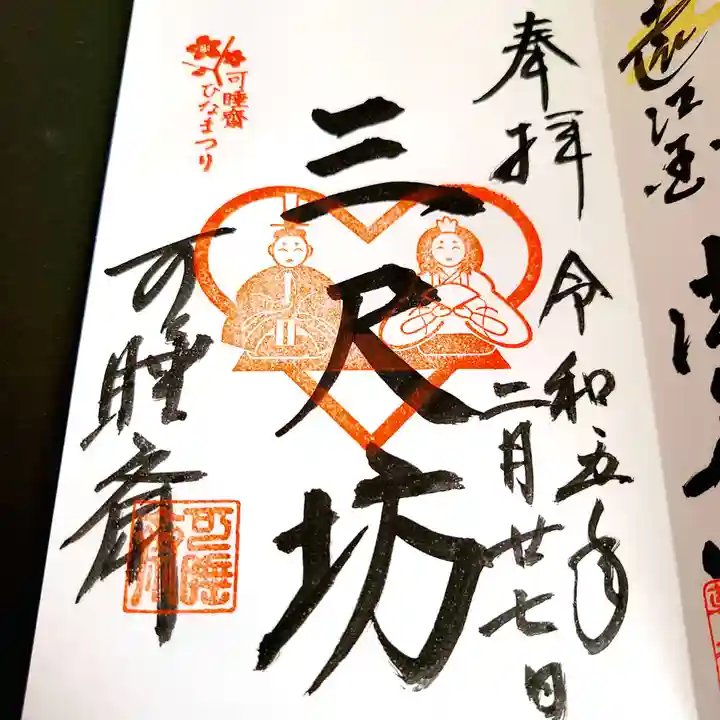 遠江国
奉拝
令和五年
二月廿七日
三尺坊
可睡齋
ひなまつり
可睡斎